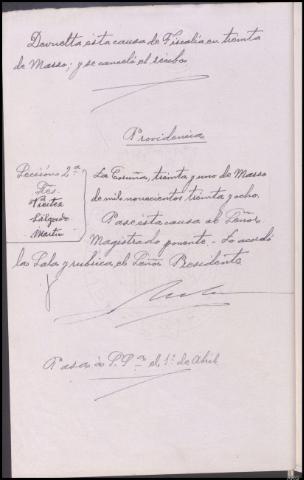 Devuelta esta causa de Fiscalía en treinta
de Marzo; y se canceló el recibo
Providencia
Sección 2ª
Sres.
Vieites
Salgado
Martín
La Coruña, treinta y uno de Marzo
de mil novecientos treinta y ocho.
Pase esta causa al Señor
Magistrado ponente. - Lo acordó
la Sala y rubrica el Señor Presidente
Pasa a S.Sª el 1º de Abril